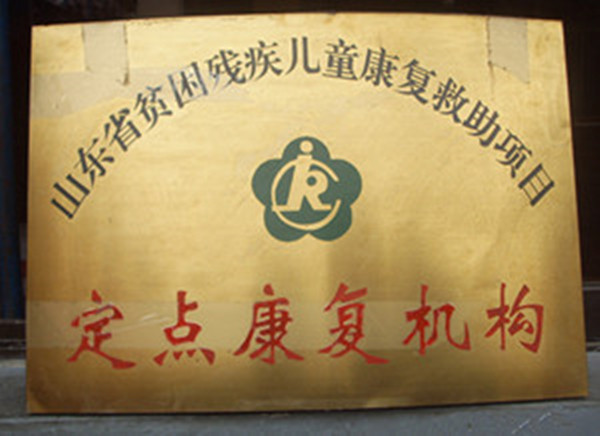 山东省贫困残疾儿童康复救助项目
定点康复机构